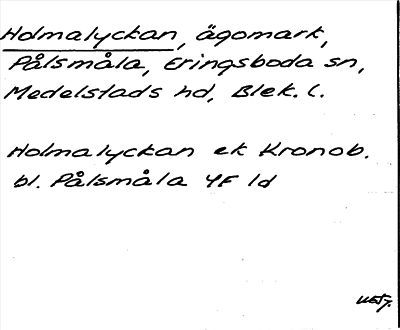 Holmalyckan, ägomark,
Pålsmåla, Eringsboda sn,
Medelstads hd, Blek. l.
Holmalyckan ek Kronob.
bl. Pålsmåla YF 1d